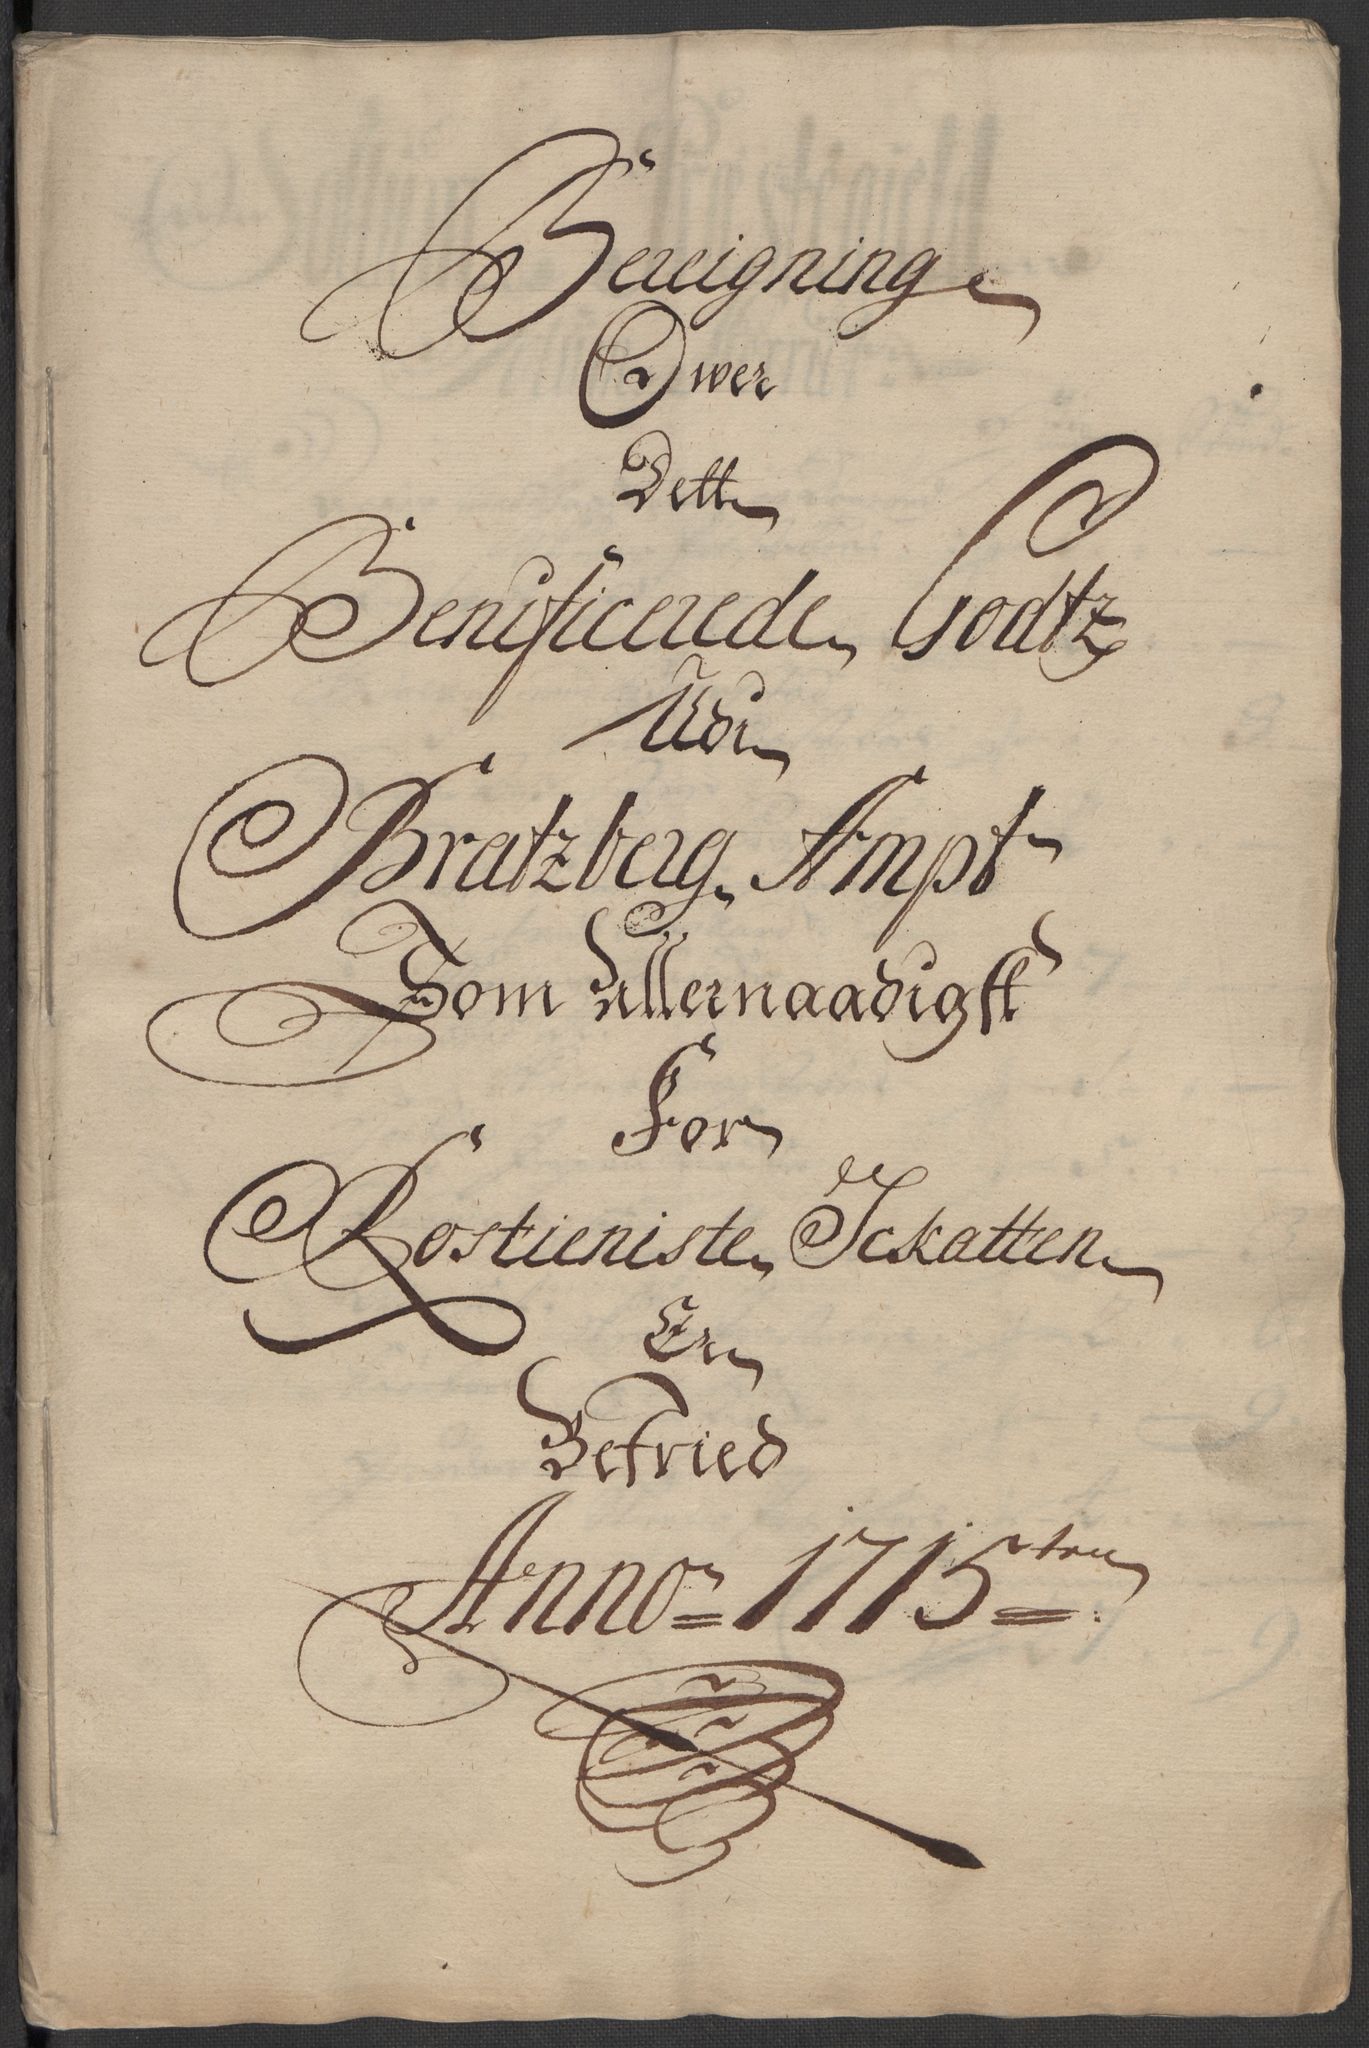 Bereigning
Ower
Dett
Benificerede Godtz
Udi
Bratzberg Ampt
Som Allernaadigst
For
Rostieniste Schatten
Er
Befried
Anno 1715ten